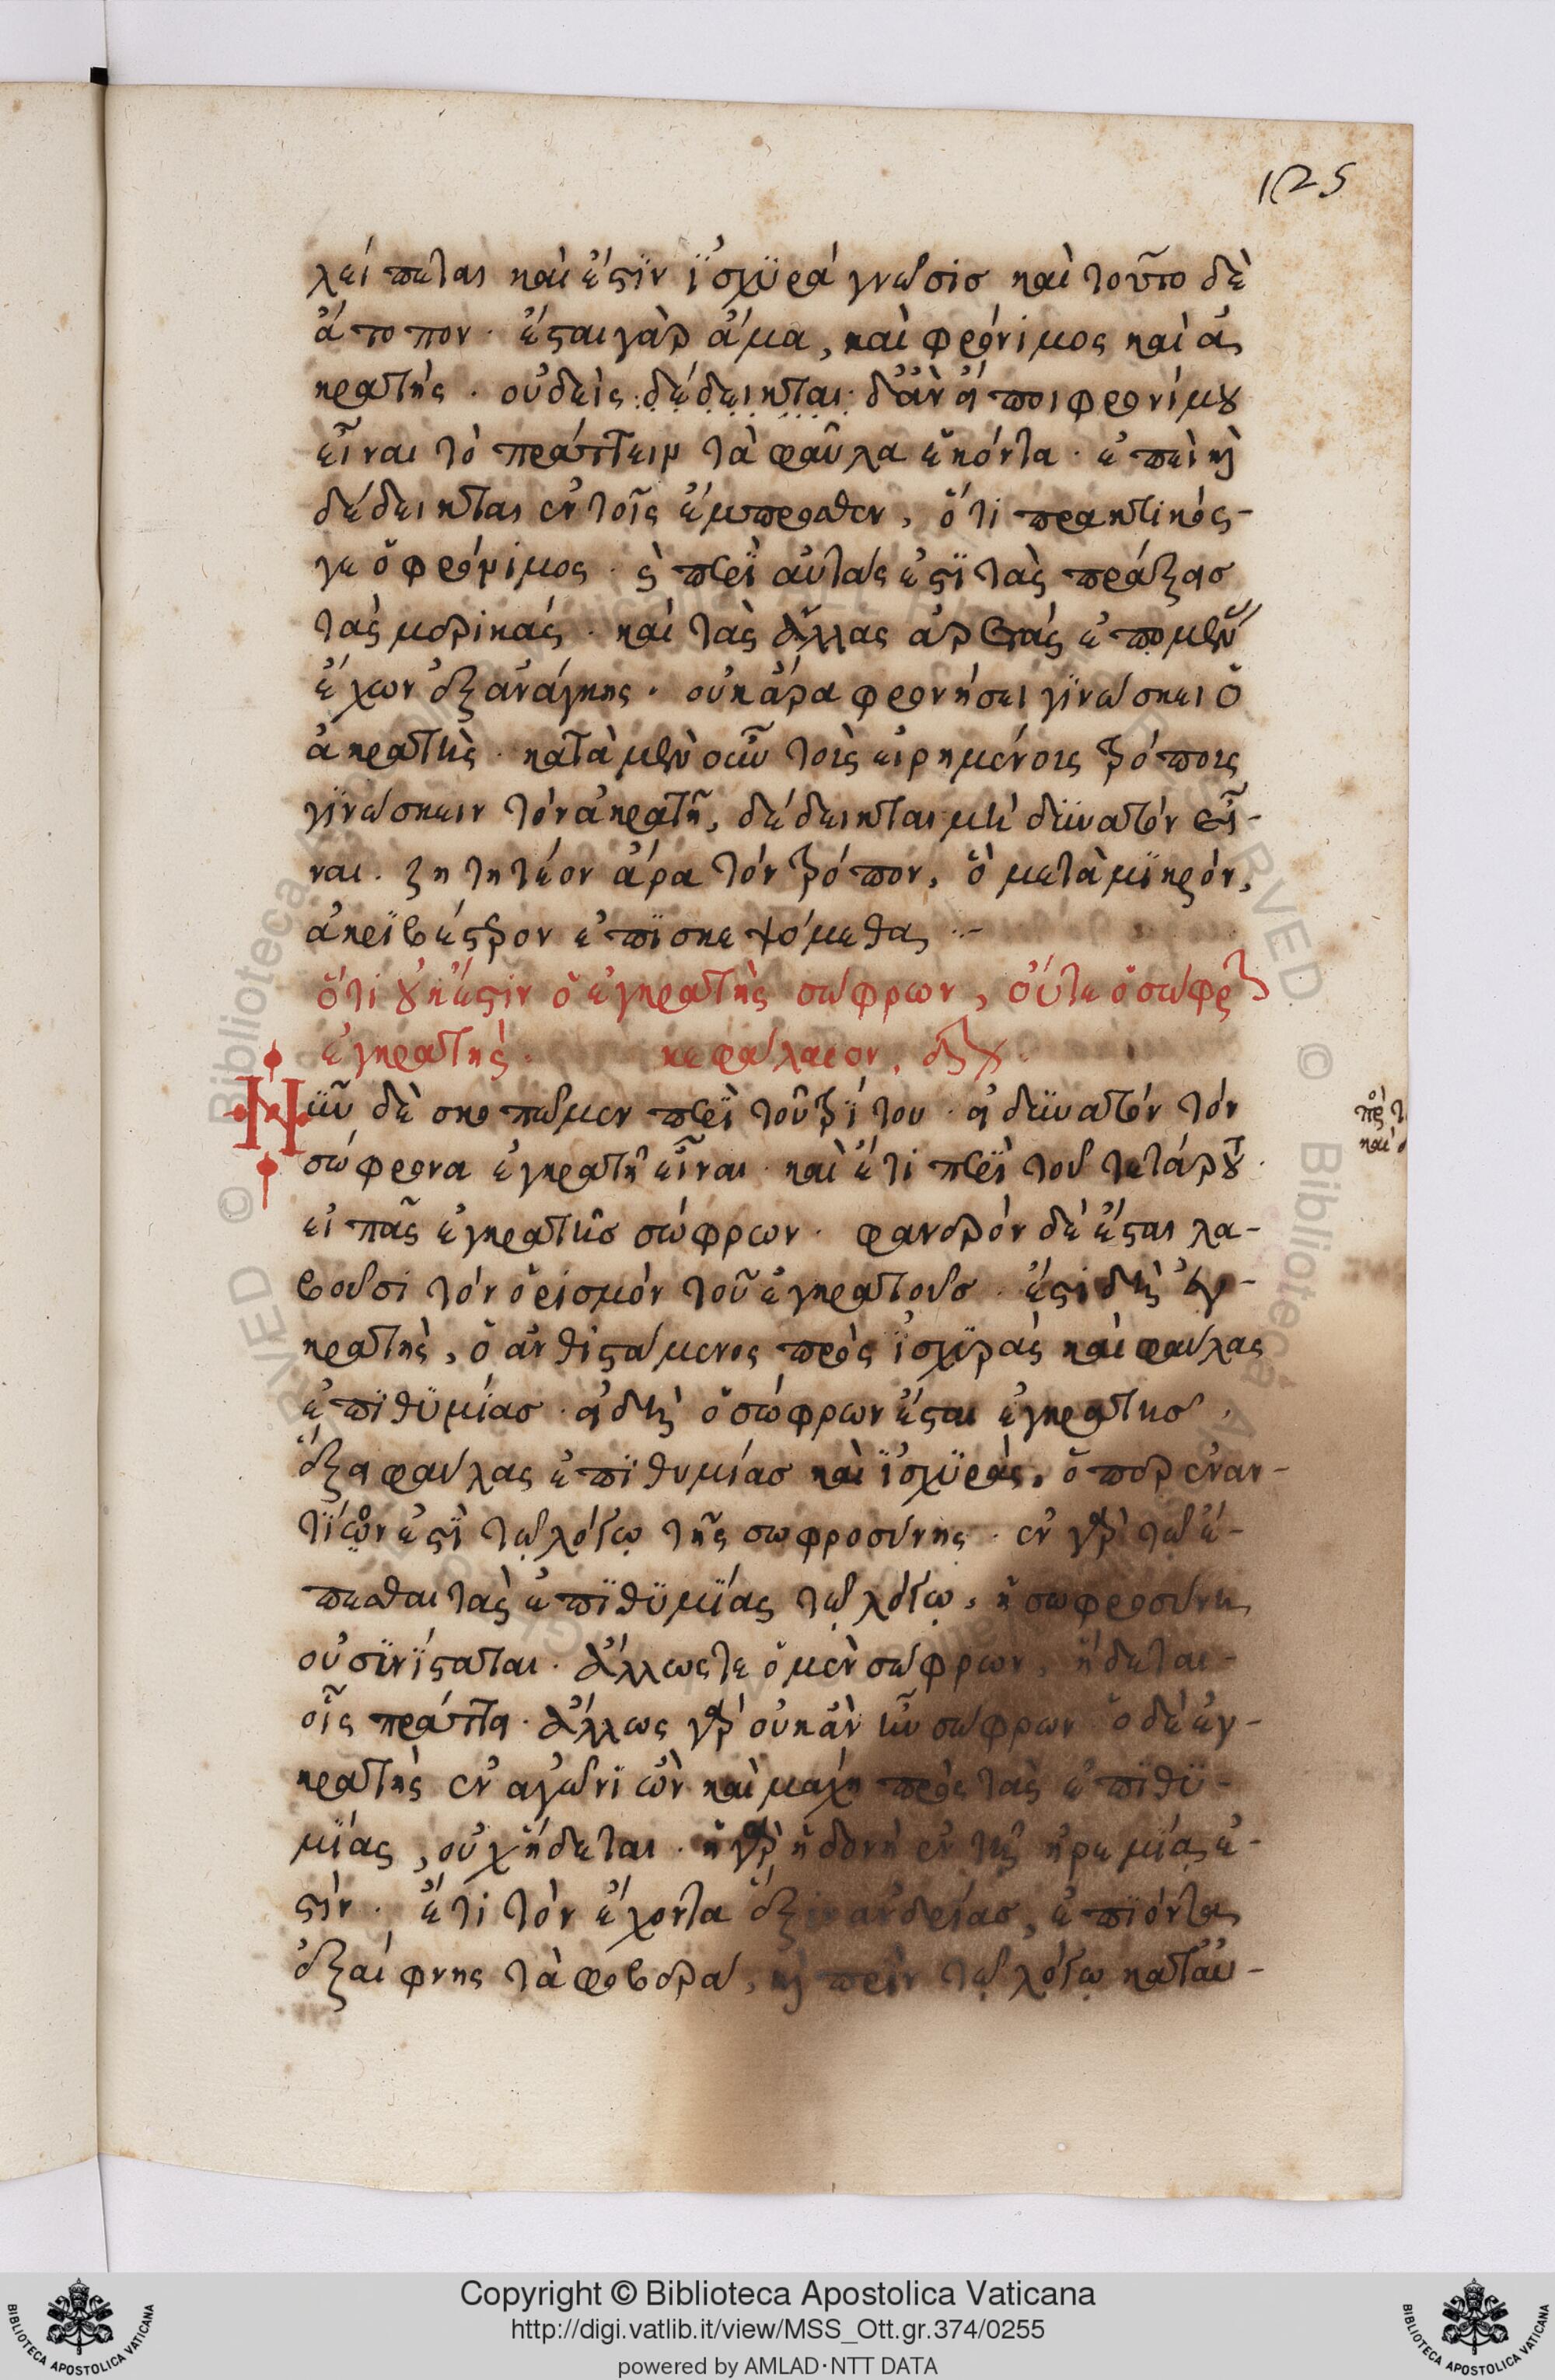 125
λείπεται καὶ ἐστὶν ἰσχυρὰ γνῶσις καὶ τοῦτο δὲ
ἄτοπον · ἔσται γὰρ ἅμα, καὶ φρόνιμος καὶ ἀ
κρατής · οὐδεὶς δέδεικται δ' ἂν εἴποι φρονίμου
εἶναι τὸ πράττειν τὰ φαῦλα ἑκόντα · ἐπεὶ καὶ
δέδεικται ἐν τοῖς ἔμπροσθεν, ὅτι πρακτικός-
γε ὁ φρόνιμος · καὶ περὶ αὐτάς ἐστι τὰς πράξεις
τὰς μερικάς · καὶ τὰς ἄλλας ἀρετὰς ἑπομένας
ἔχων ἐξανάγκης · οὐκ ἄρα φρονήσει γινώσκει ὁ
ἀκρατὴς · κατὰ μὲν οὖν τοὺς εἰρημένοις τρόποις
γινώσκειν τὸν ἀκρατῆ, δέδεικται μὴ δυνατὸν εἶ-
ναι · ζητητέον ἄρα τὸν τρόπον, ὃ μετὰ μικρόν,
ἀκριβέστερον ἐπισκεψόμεθα ·-
ὅτι οὐκ ἔστιν ὁ ἐγκρατὴς σώφρων, οὔτε ὁ σώφρων
ἐγκρατής · κεφάλαιον,
Νῦν δὲ σκοπῶμεν περὶ τοῦ τρίτου · εἰ δυνατὸν τὸν
σώφρονα ἐγκρατῆ εἶναι · καὶ ἔτι περὶ τοῦ τετάρτου ·
εἰ πᾶς ἐγκρατὴς σώφρων · φανερὸν δὲ ἔσται λα-
βοῦσι τὸν ὁρισμὸν τοῦ ἐγκρατοῦς · ἔστι δὴ ἐγ-
κρατὴς, ὁ ἀνθιστάμενος πρὸς ἰσχυρὰς καὶ φαύλας
ἐπιθυμίας · εἰ δὴ ὁ σώφρων ἔσται ἐγκρατὴς,
ἕξει φαύλας ἐπιθυμίας καὶ ἰσχυράς, ὅπερ ἐναν-
τίον ἐστὶ τῷ λόγῳ τῆς σωφροσύνης · ἐν γὰρ τῷ ἕ-
πεσθαι τὰς ἐπιθυμίας τῷ λόγῳ, ἡ σωφροσύνη
συνίσταται · ἄλλως τε ὁ μὲν σώφρων, ἥδεται-
οἷς πράττει · ἄλλως γὰρ οὐκ ἂν ἦν σώφρων ὁ δὲ ἐγ-
κρατὴς ἐν ἀγῶνι ὢν καὶ μάχῃ πρὸς τὰς ἐπιθυ-
μίας, οὐχ ἥδεται · ἡ γὰρ ἡδονὴ ἐν τῇ ἠρεμίᾳ ἐ-
στίν · ἔτι τὸν ἔχοντα ἕξιν ἀνδρείας, ἐπιόντα
ἐξαίφνης τὰ φοβερά, καὶ πρὶν τῷ λόγῳ κατὰυ-
Copyright © Biblioteca Apostolica Vaticana
http://digi.vatlib.it/view/MSS_Ott.gr.374/0255
powered by AMLAD·NTT DATA
BIBLIOTECA APOSTOLICA VATICANA
BIBLIOTECA APOSTOLICA VATICANA